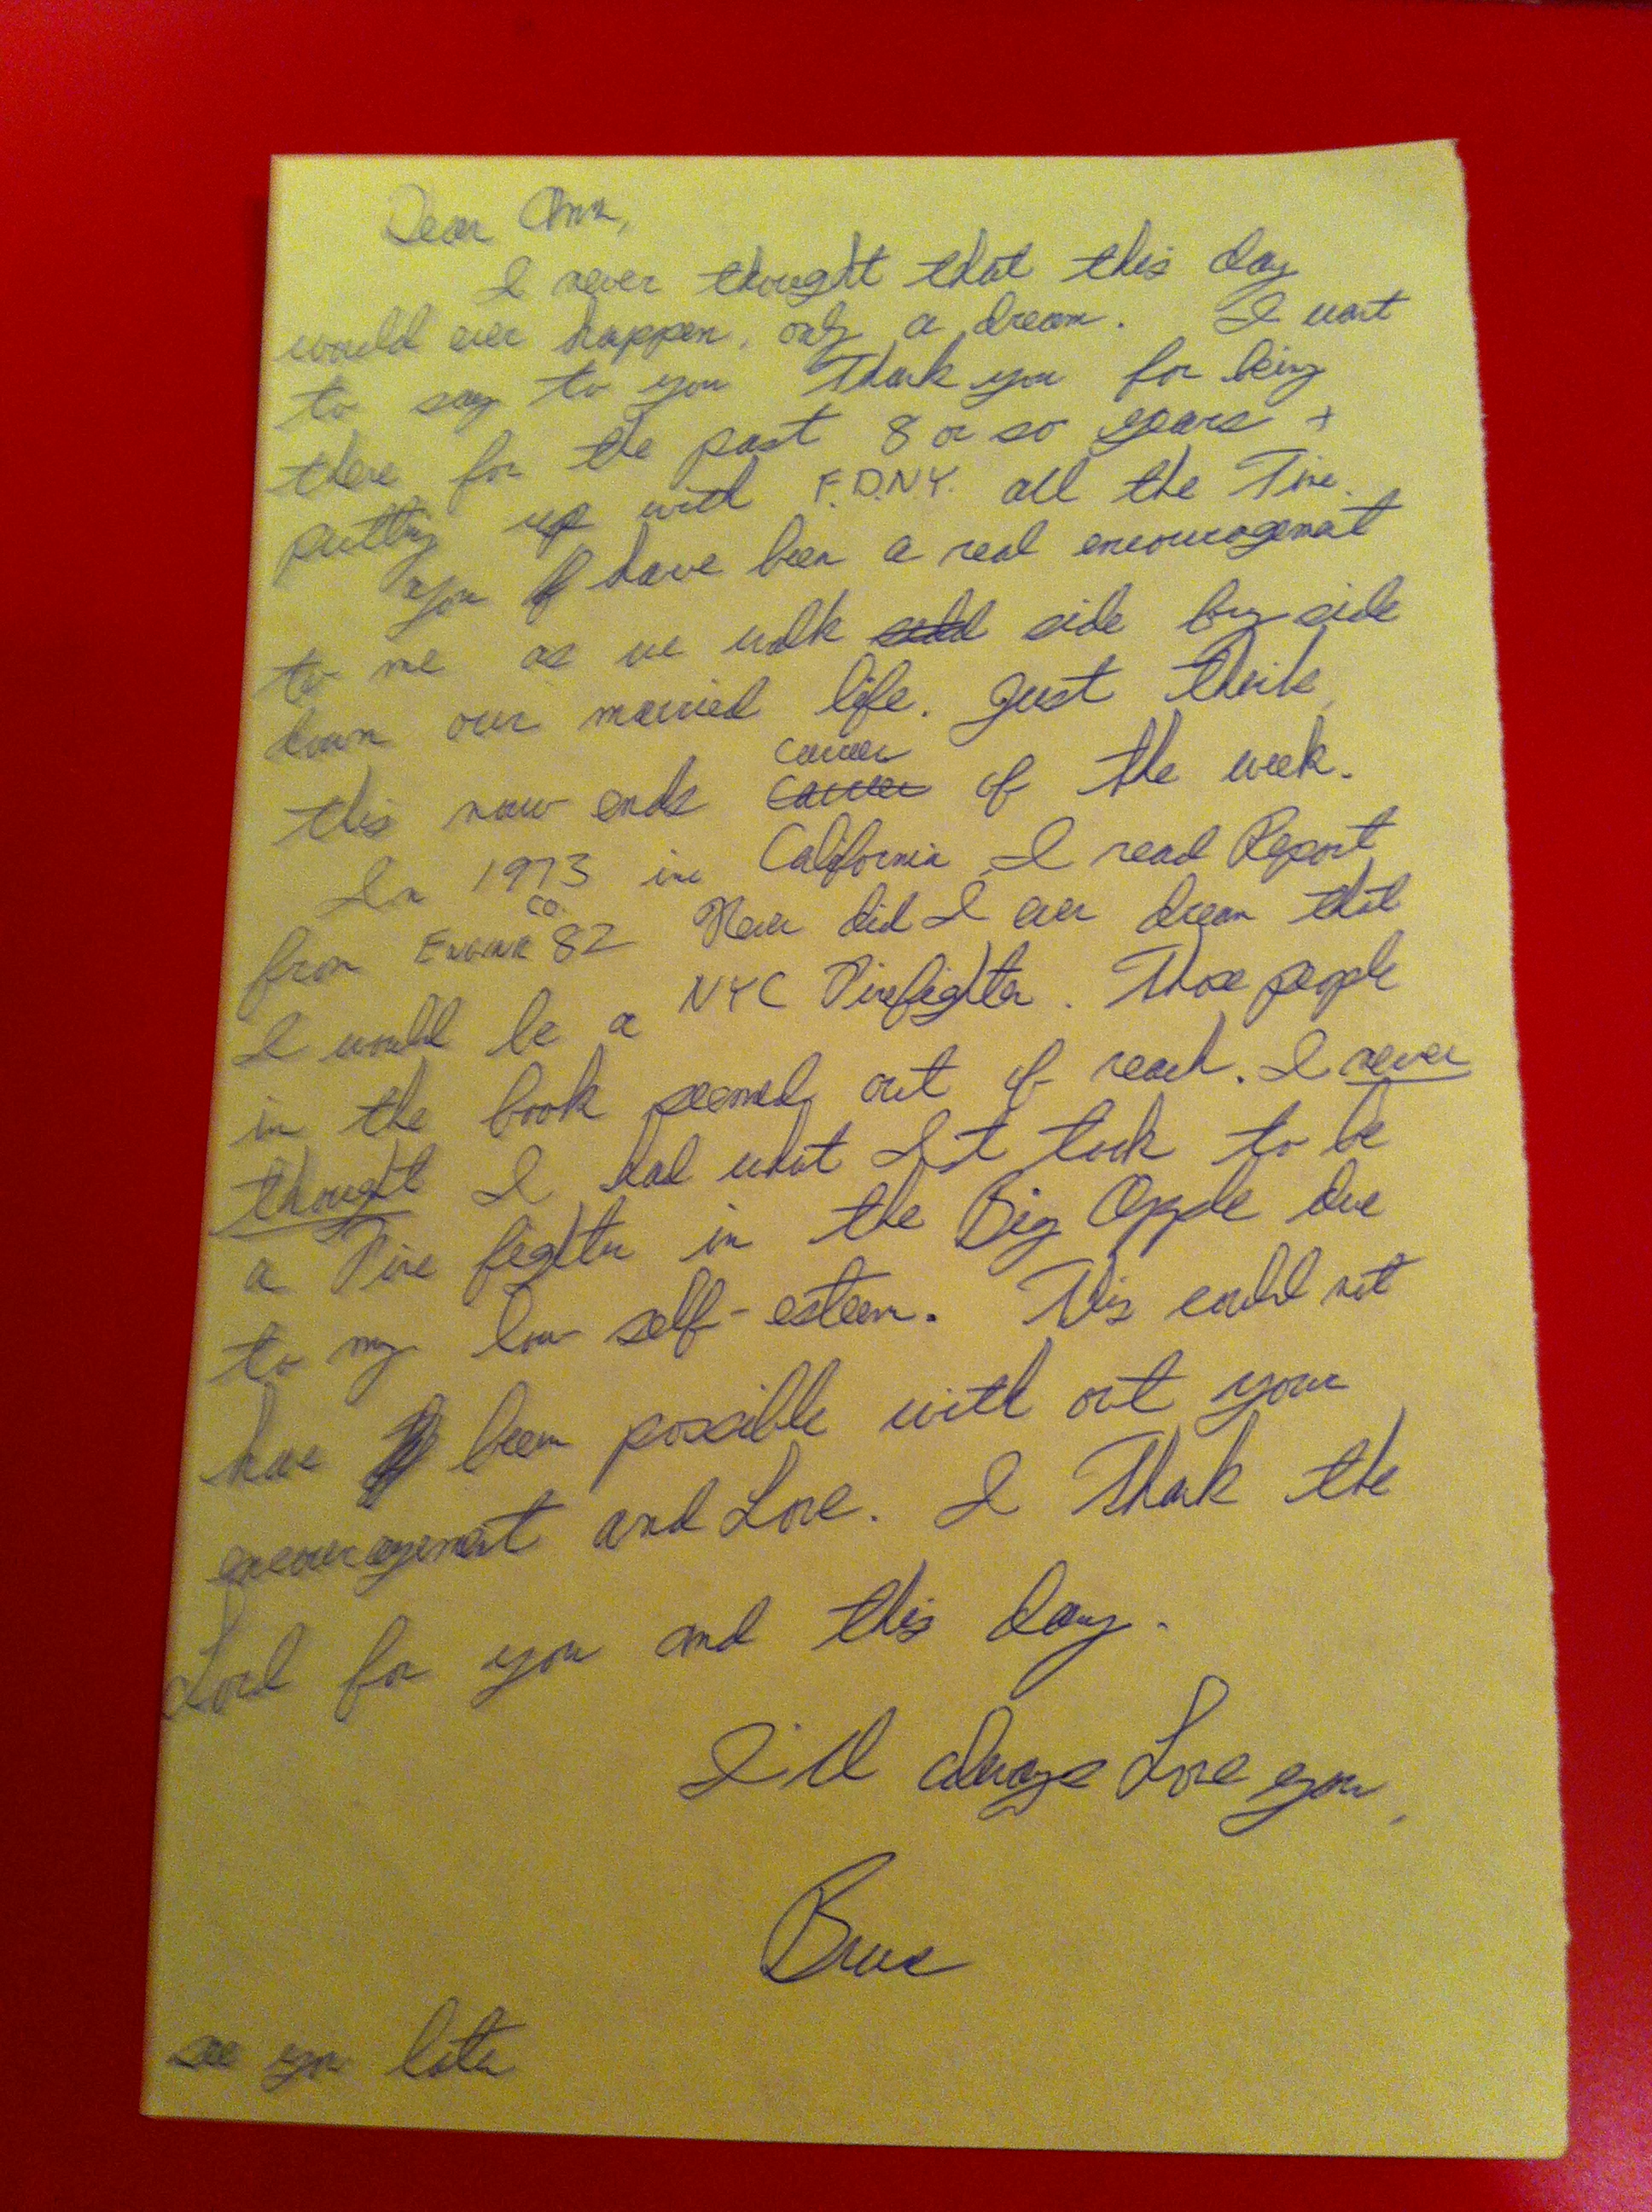 Dear Ann,
I never thought that this day
would ever happen, only a dream. I want
to say to you Thank you for being
there for the past 8 or so years +
putting up with F.D.N.Y. all the Time.
You have been a real encouragement
to me as we walk side by side
down our married life. Just think,
this now ends career
of the week.
In 1973 in California I read Report
from ENGINE CO. 82 Never did I ever dream that
I would be a NYC Firefighter. Those people
in the book seemed out of reach. I never
thought I had what It took to be
a Fire fighter in the Big Apple due
to my low self-esteem. This could not
have been possible with out your
encouragement and Love. I Thank the
Lord for you and this day.
I'll always Love you,
Bruce
see you later